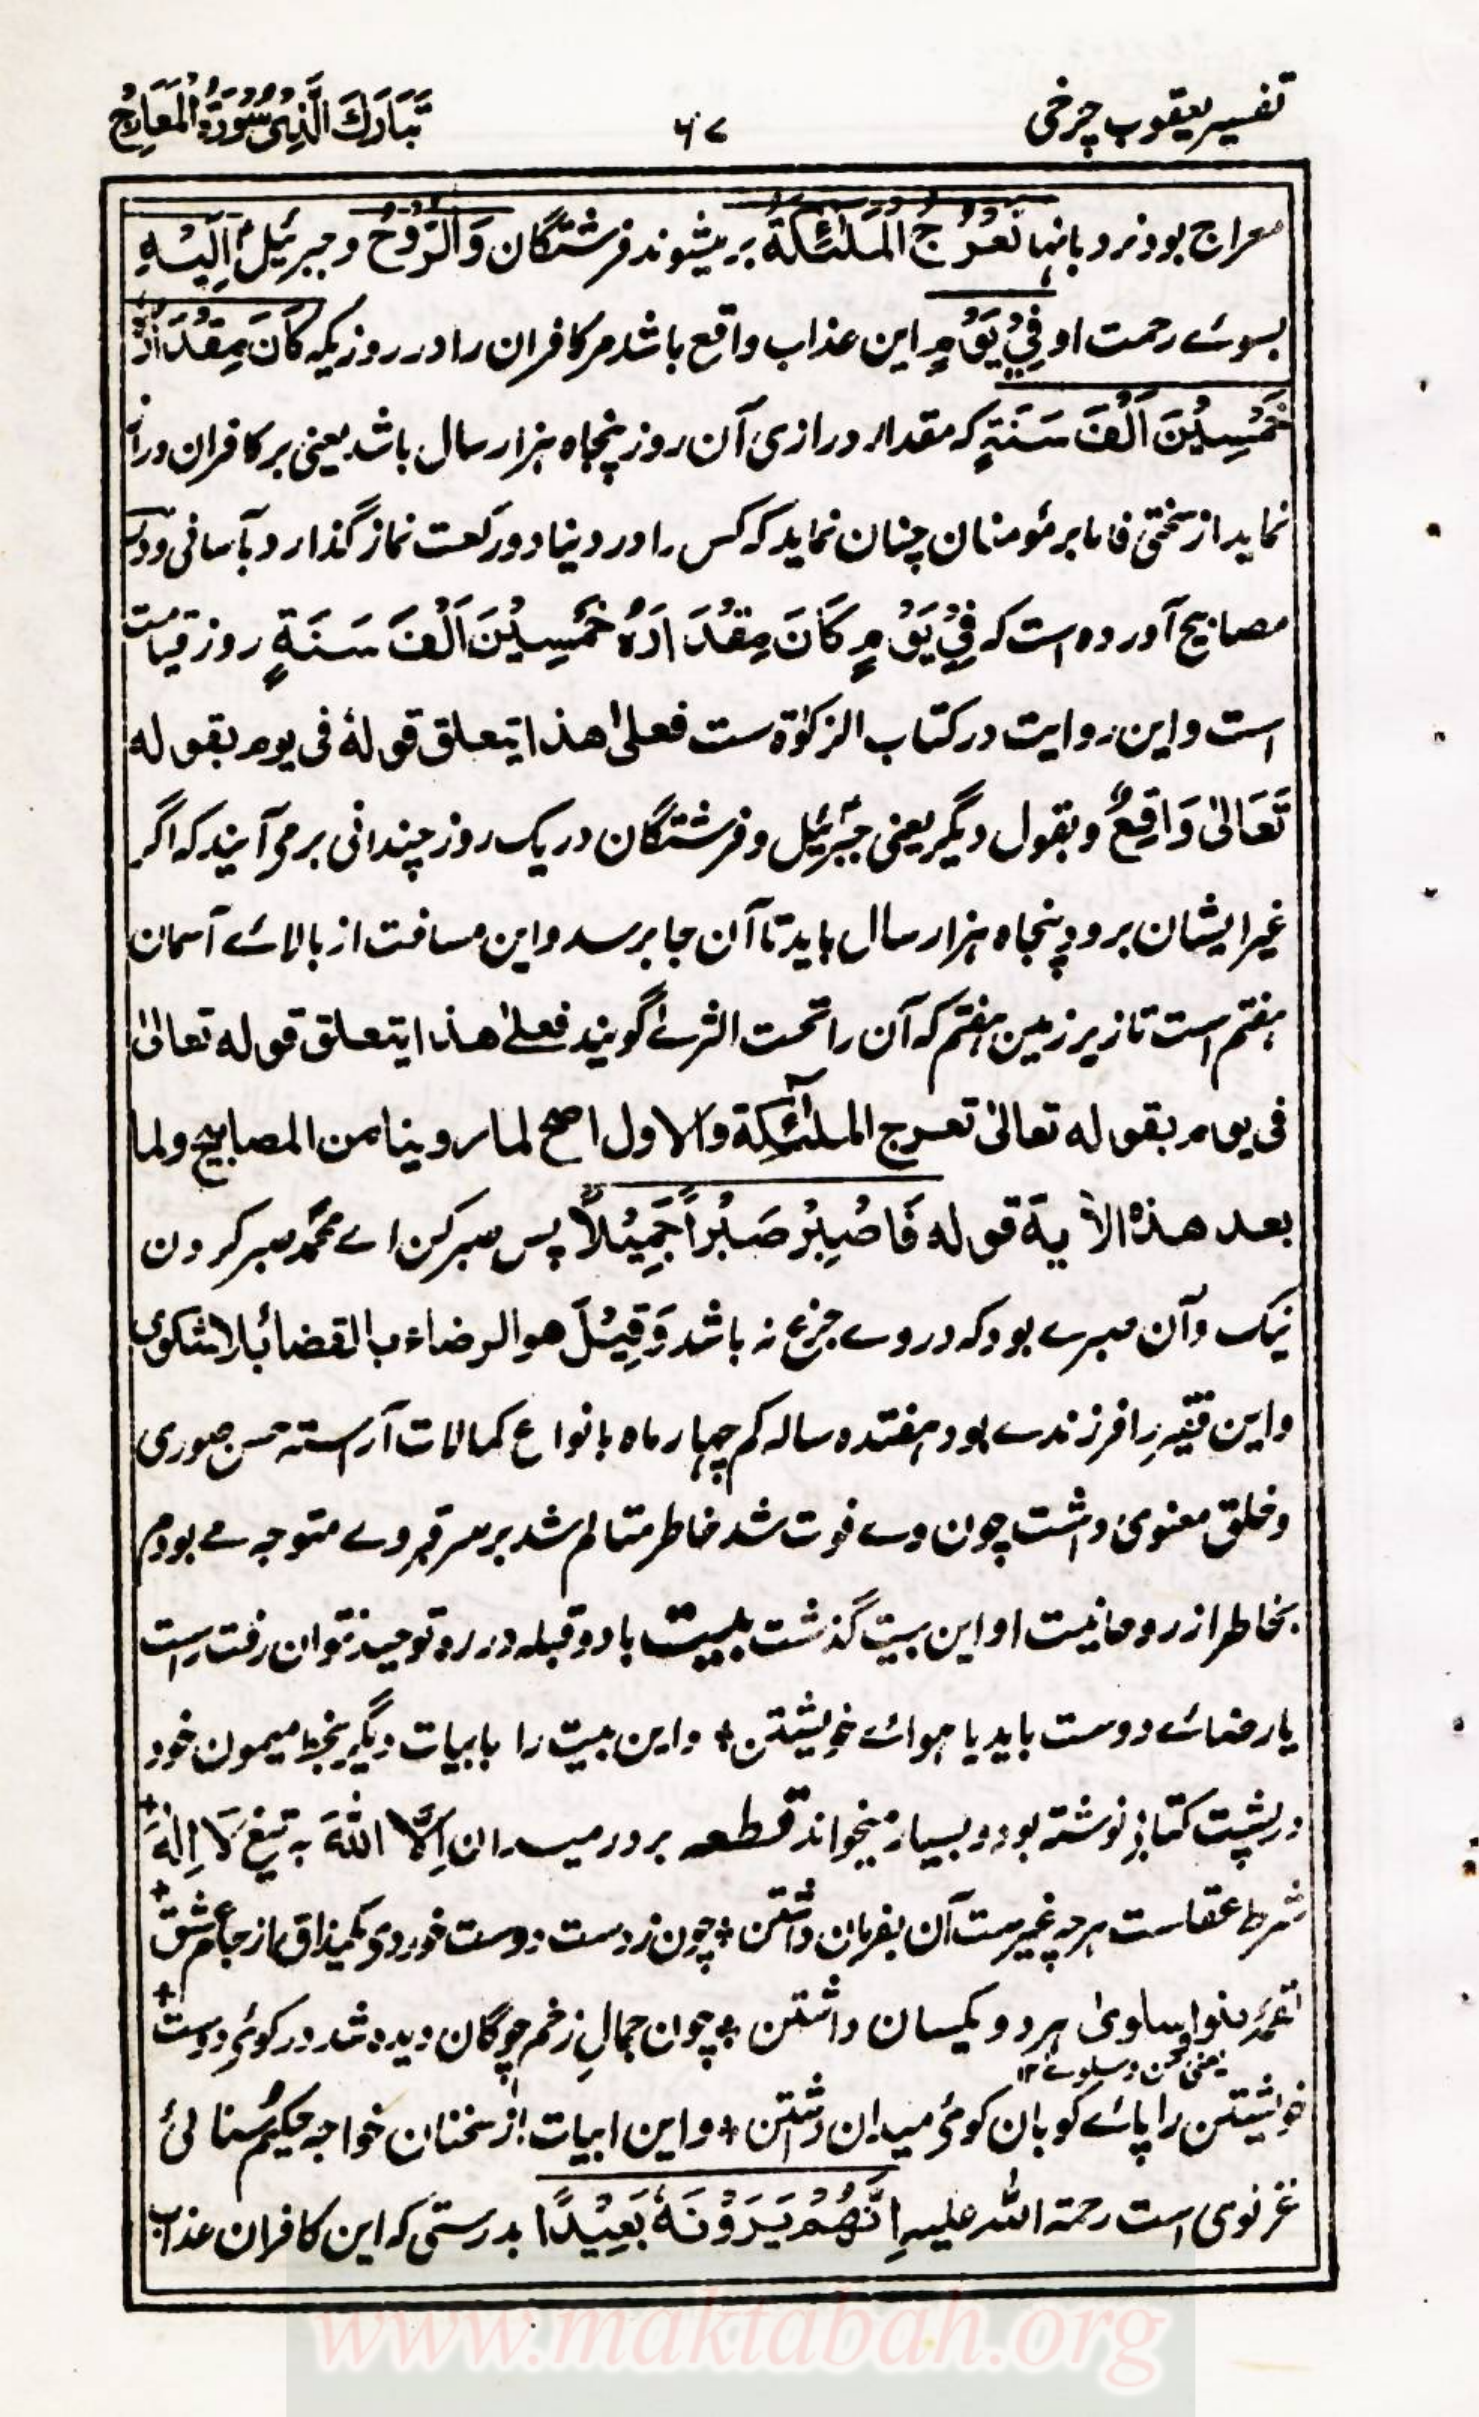 تفسیر یعقوب چرخی
۶۷
تَبَارَكَ الَّذِي سُورَةُ الْمَعَارِجُ
معراج بود نرد بانہا تَعْرُجُ الْمَلٰئِكَةُ بر میشوند فرشتگان وَالرُّوْحُ و جبرئیل اِلَيْهِ
بسوئے رحمت او فِيْ يَوْمٍ این عذاب واقع باشد مر کافران را در روزیکہ كَانَ مِقْدَارُهٗ
خَمْسِيْنَ اَلْفَ سَنَةٍ کہ مقدار درازی آن روز پنجاہ ہزار سال باشد یعنی بر کافران دراز
نماید از سختی فاما بر مؤمنان چنان نماید کہ کس را در دنیا دو رکعت نماز گذارد بآسانی و در
مصابیح آوردہ است کہ فِيْ يَوْمٍ كَانَ مِقْدَارُهٗ خَمْسِيْنَ اَلْفَ سَنَةٍ روز قیامت
است و این روایت در کتاب الزکوٰة ست فعلیٰ ھذا یتعلق قولہٗ فی یوم بقولہ
تَعَالیٰ وَاقِعٌ و بقول دیگر یعنی جبرئیل و فرشتگان در یک روز چندانی برمی آیند کہ اگر
غیر ایشان برود پنجاہ ہزار سال باید تا آن جا برسد و این مسافت از بالائے آسمان
ہفتم است تا زیر زمین ہفتم کہ آن را تحت الثریٰ گویند فعلیٰ ھذا یتعلق قولہ تعالیٰ
فی یوم بقولہ تعالیٰ تعرج الملٰئکة والاول اصح لما روینا من المصابیح ولما
بعد ھذہ الاٰیة قولہ فَاصْبِرْ صَبْرًا جَمِيْلًا پس صبر کن اے محمد صبر کردن
نیک و آن صبرے بود کہ در وے جزع نہ باشد وَقِيْلَ ھو الرضاء بالقضاء بلا شکوی
و این فقیر را فرزندے بود ہفتدہ سالہ کم چہار ماہ بانواع کمالات آراستہ حسن صوری
و خلق معنوی داشت چون وے فوت شد خاطر متالم شد بر سر قبر وے متوجہ مے بودم
بخاطر از روحانیت او این بیت گذشت بیت با دو قبلہ در رہ توحید نتوان رفت راست
یا رضائے دوست باید یا ہوائے خویشتن + و این بیت را با ابیات دیگر بخط میمون خود
در پشت کتابے نوشتہ بود و بسیار میخواند قطعہ بر در میدان اِلَّا اللهَ بہ تیغ لَا اِلٰهَ +
شرط عقلست ہر چہ غیرست آن بفرمان داشتن + چون ز دست دوست خوردی یک مذاق از جام عشق +
ہر دو یکسان داشتن + چون جمال زخم چوگان دیدہ شد در کوئے دوست +
یعنی من و سلویٰ ۱۲
خویشتن را پائے کوبان گوئے میدان داشتن + و این ابیات از سخنان خواجہ حکیم سنائی
غزنوی است رحمة اللہ علیہ اِنَّهُمْ يَرَوْنَهٗ بَعِيْدًا بدرستی کہ این کافران عذاب
www.maktabah.org